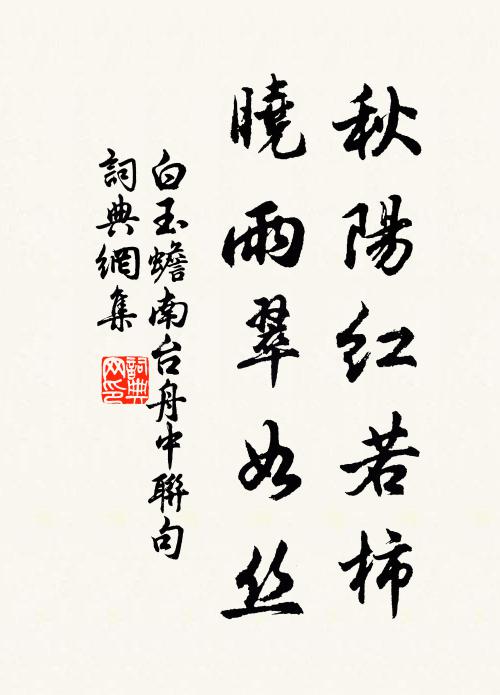 秋陽红若柿
曉雨翠如丝
白玉蟾南台舟中聯句
詞典網集
詞典网印